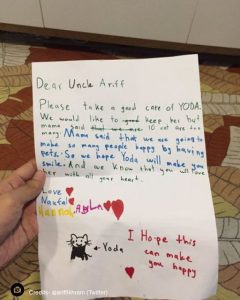 Dear Uncle Ariff
Please take a good care of YODA.
We would like to good keep her but
mama said that we are 10 cat are too
many. Mama said that we are going to
make so many people happy by having
pets. So we hope Yoda will make you
smile. And we know that you will love
her with all your heart.
Love
Naufal
Hannah, Abla
← Yoda
I Hope this
can make
you happy
Credits: @ariffikhram (Twitter)